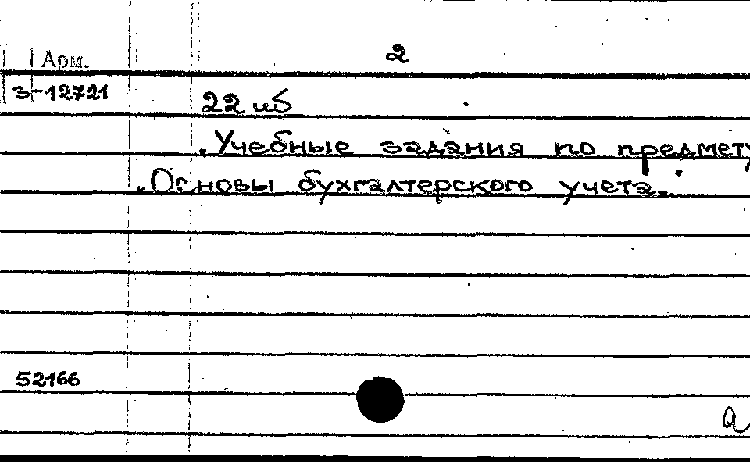 Арм. 2
З-12721
22 иб
Учебные задания по предмету
"Основы бухгалтерского учета."
52166